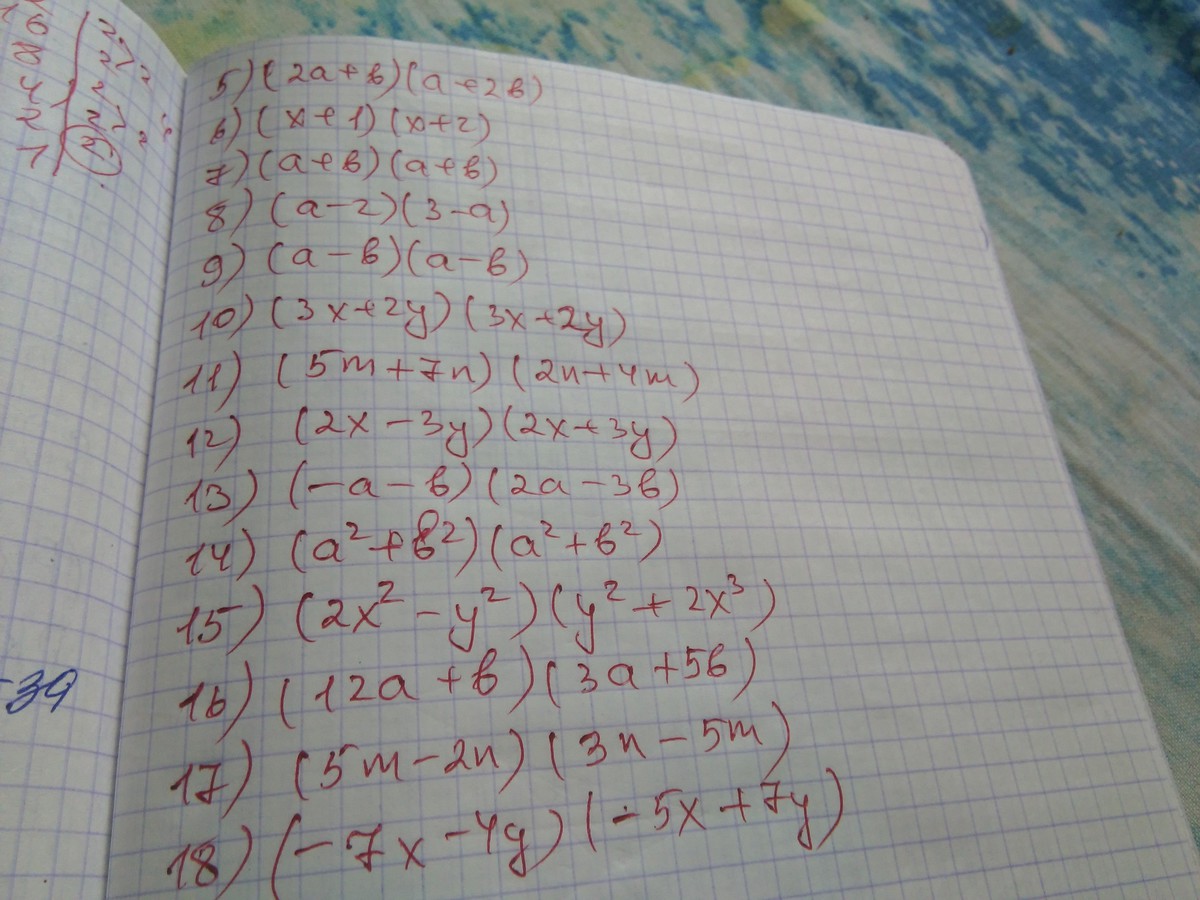 16
8
4
2
1
2
2
2
2
2
-39
5) (2a+в)(a+2в)
6) (x+1)(x+2)
7) (a+в)(a+в)
8) (a-2)(3-a)
9) (a-в)(a-в)
10) (3x+2y)(3x+2y)
11) (5m+7n)(2n+4m)
12) (2x-3y)(2x+3y)
13) (-a-в)(2a-3в)
14) (a²+в²)(a²+в²)
15) (2x²-y²)(y²+2x³)
16) (12a+в)(3a+5в)
17) (5m-2n)(3n-5m)
18) (-7x-4y)(-5x+7y)